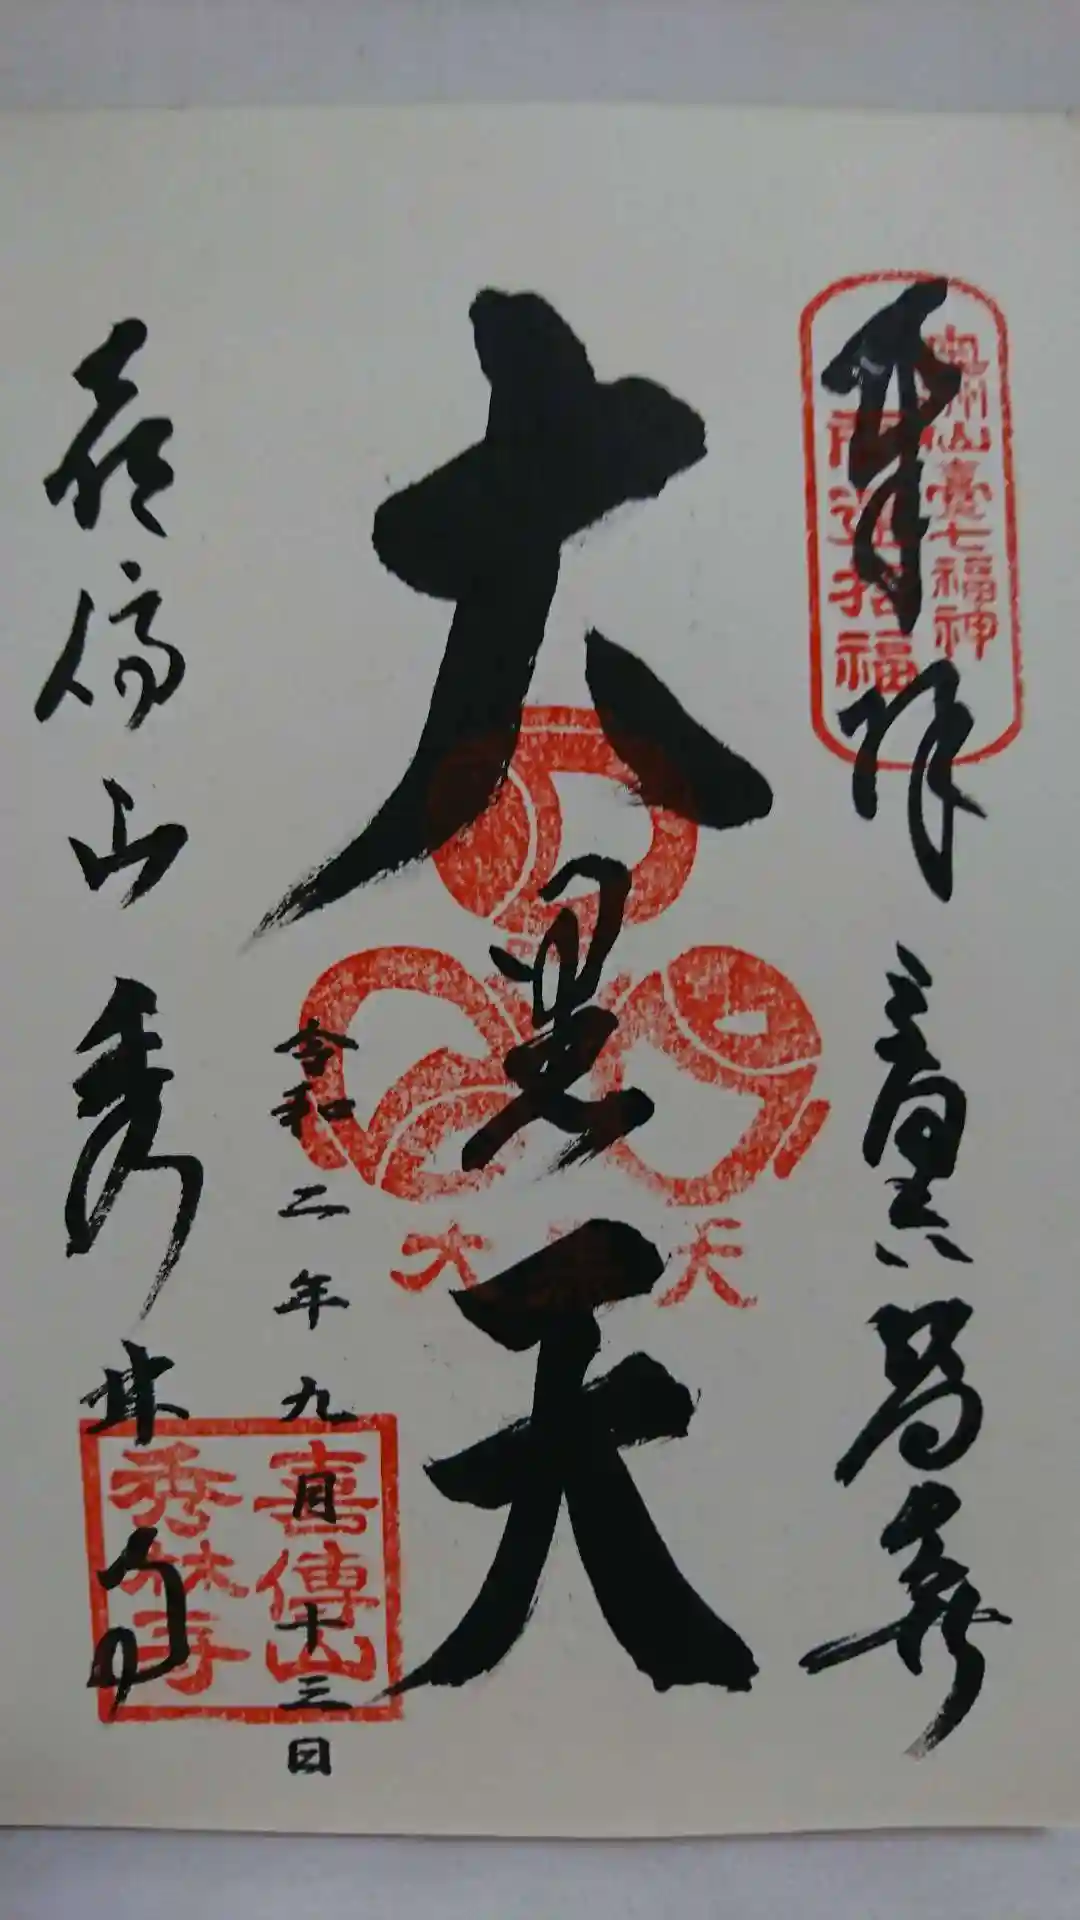 奉拝
奥州仙臺七福神
開運招福
大黒天
大黒天
令和二年九月十三日
喜傳山秀林寺
喜傳山
秀林寺